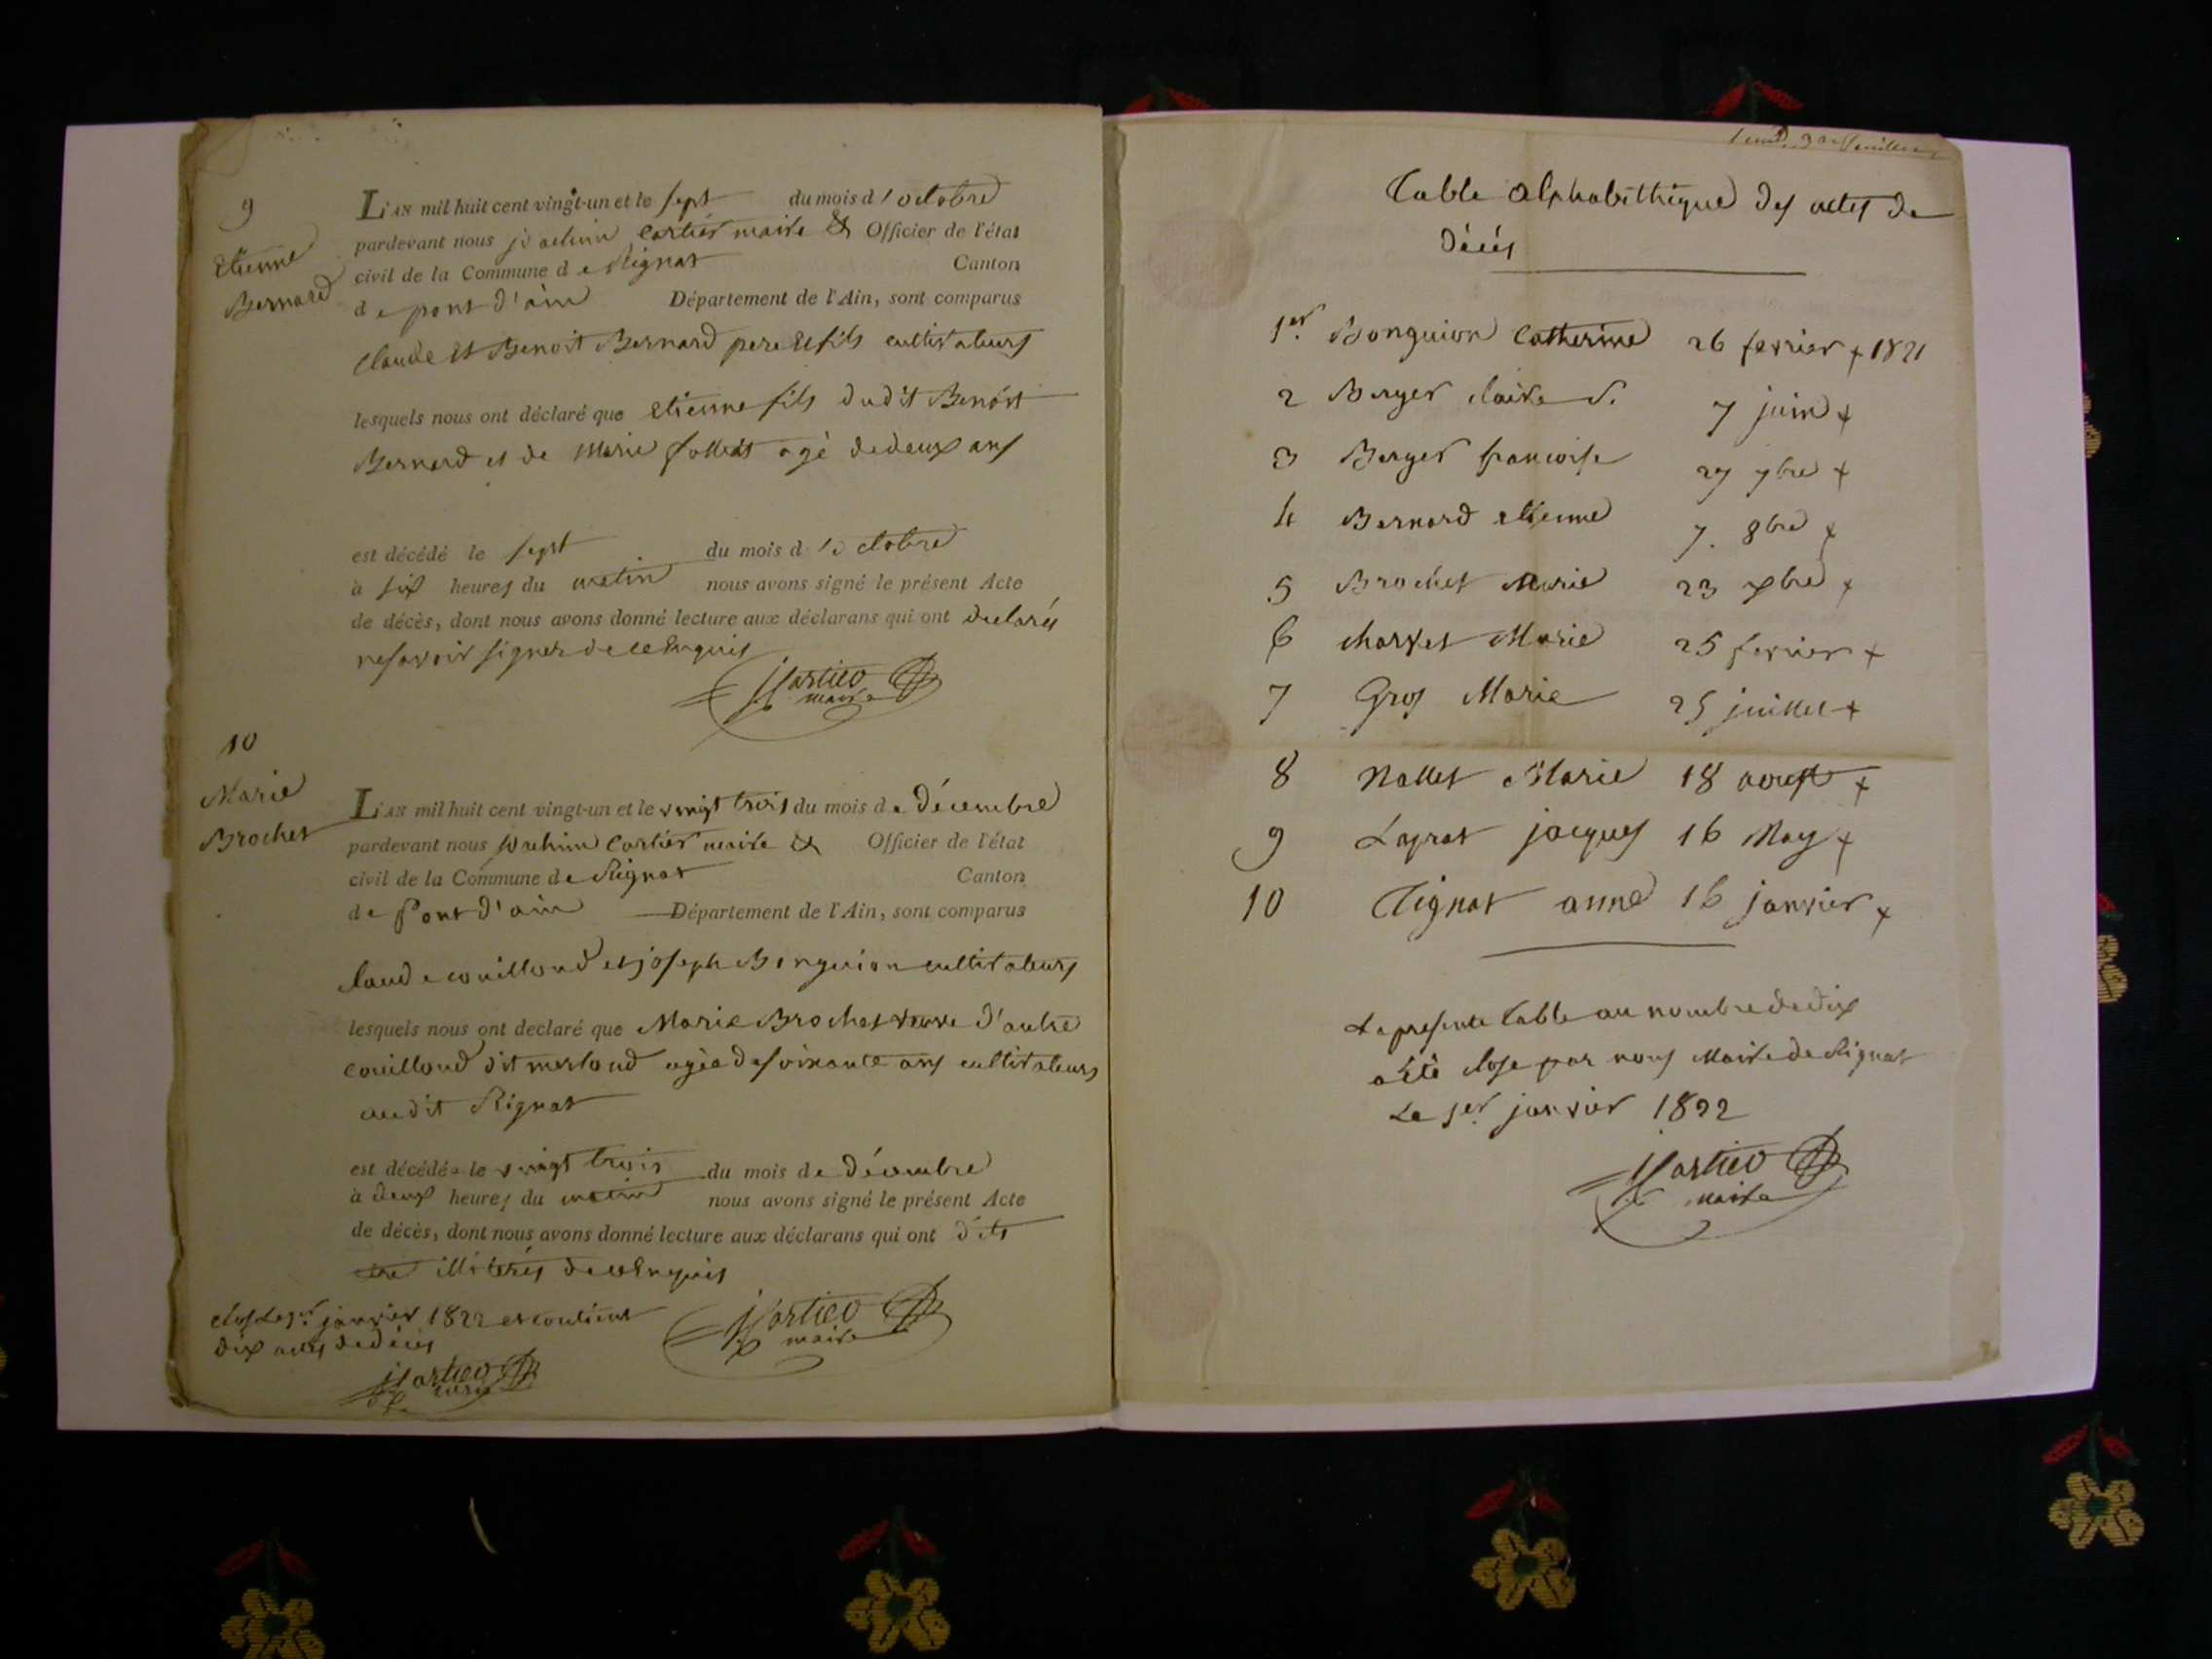 9
Etienne
Bernard
L'AN mil huit cent vingt-un et le sept du mois d'octobre
pardevant nous joachim Cartier maire & Officier de l'état
civil de la Commune de Rignat Canton
de pont d'ain Département de l'Ain, sont comparus
Claude et Benoit Bernard pere et fils cultivateurs
lesquels nous ont déclaré que etienne fils dudit Benoit
Bernard et de Marie âgé de deux ans
est décédé le sept du mois d'octobre
à six heures du matin nous avons signé le présent Acte
de décès, dont nous avons donné lecture aux déclarans qui ont declarés
ne savoir signer de ce enquis
JCartier
maire
10
Marie
Brochet
L'AN mil huit cent vingt-un et le vingt trois du mois de décembre
pardevant nous joachim Cartier maire & Officier de l'état
civil de la Commune de Rignat Canton
de Pont d'ain Département de l'Ain, sont comparus
claude couilloud et joseph Bonguion cultivateurs
lesquels nous ont declaré que Marie Brochet veuve d'autre
couilloud dit merloud agée de soixante ans cultivateurs
audit Rignat
est décédée le vingt trois du mois de décembre
à deux heures du matin nous avons signé le présent Acte
de décès, dont nous avons donné lecture aux déclarans qui ont dits
être illiterés de ce enquis
clos le 1er janvier 1822 et contient
dix actes de décés
JCartier
maire
JCartier
maire
Table alphabéthique des actes de
décés
1er. Bonguion Catherine 26 fevrier + 1821
2 Berger claire 7 juin +
3 Berger francoise 27 7bre +
4 Bernard etienne 7. 8bre +
5 Brochet Marie 23 xbre +
6 charvet Marie 25 fevrier +
7 Gros Marie 25 juillet +
8 Nallet Marie 18 aoust +
9 Laprat jacques 16 May +
10 Tignat anne 16 janvier +
La presente table au nombre de dix
a été close par nous Maire de Rignat
Le 1er. janvier 1822
JCartier
maire